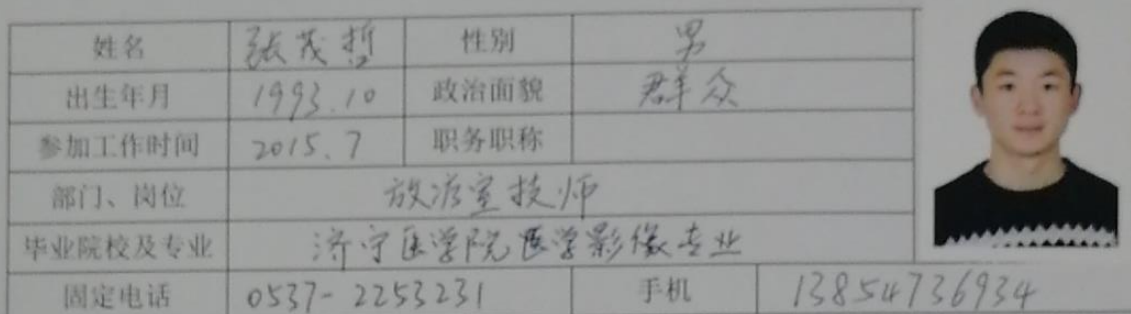 姓名 张茂哲 性别 男
出生年月 1993.10 政治面貌 群众
参加工作时间 2015.7 职务职称
部门、岗位 放疗室技师
毕业院校及专业 济宁医学院医学影像专业
固定电话 0537-2253231 手机 13854736934